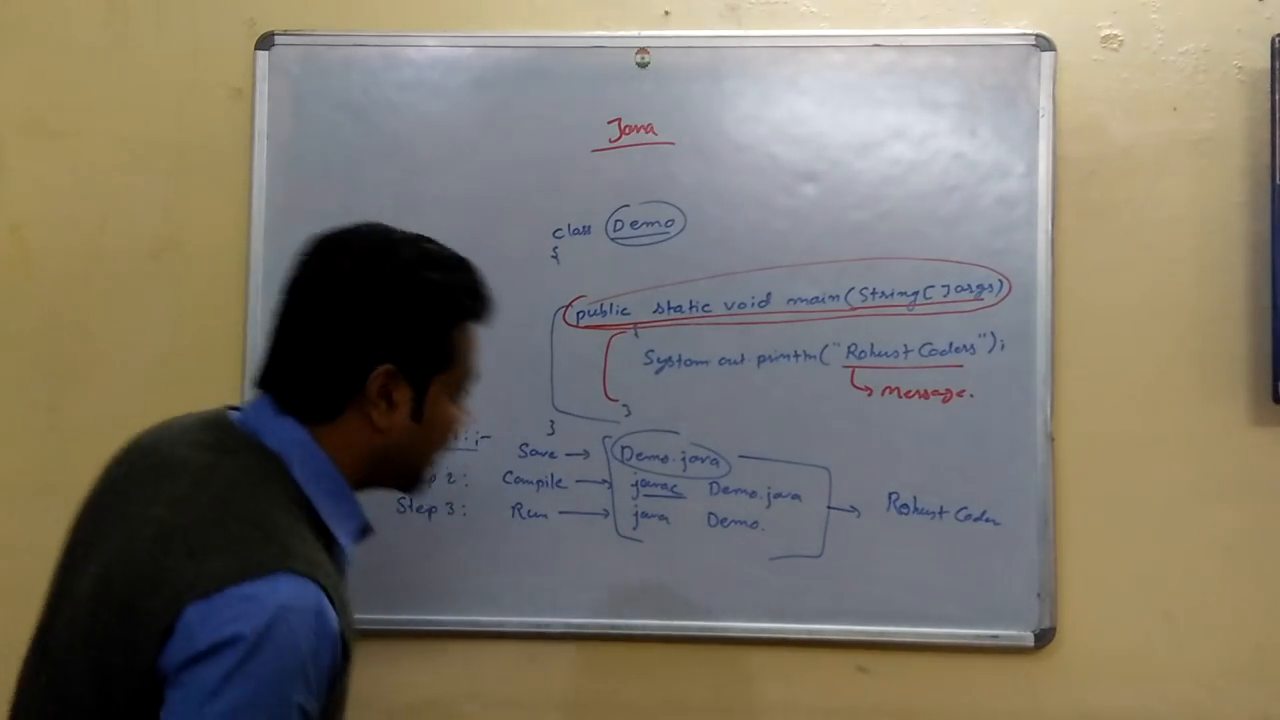 Java
class Demo
{
public static void main(String[]args)
{
System.out.println("Robust Coders");
Message.
}
}
1:;-
Save → Demo.java
2: Compile → javac Demo.java
Step 3: Run → java Demo.
→ Robust Coder